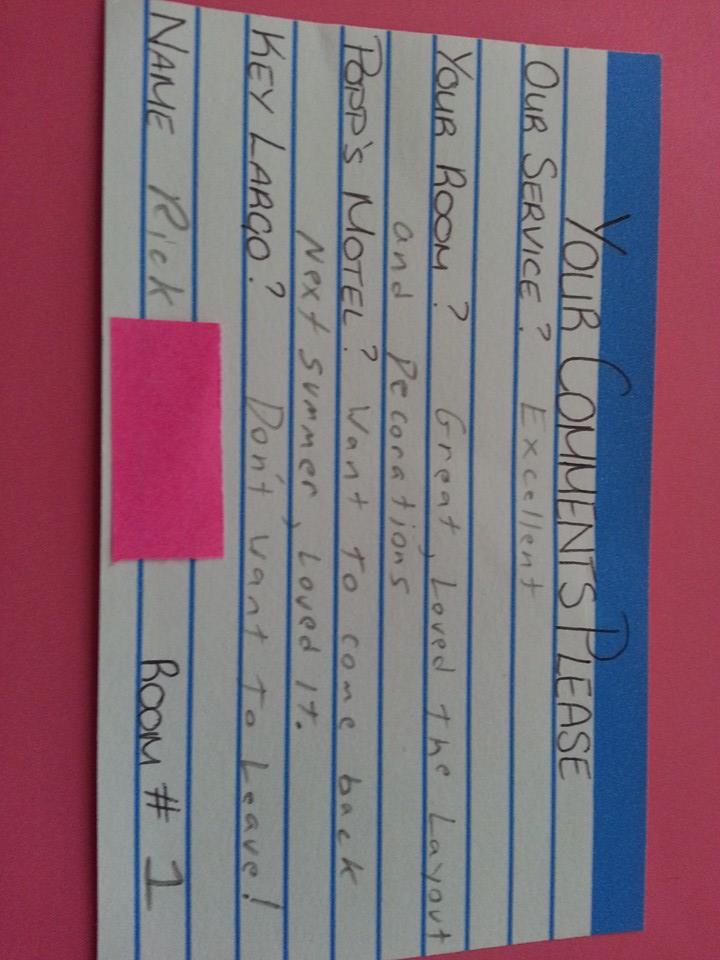 YOUR COMMENTS PLEASE
OUR SERVICE? Excellent
YOUR ROOM? Great, Loved the Layout
and Decorations
POPP'S MOTEL? Want to come back
Next summer, Loved It.
KEY LARGO? Don't want to Leave!
NAME Rick ROOM # 1